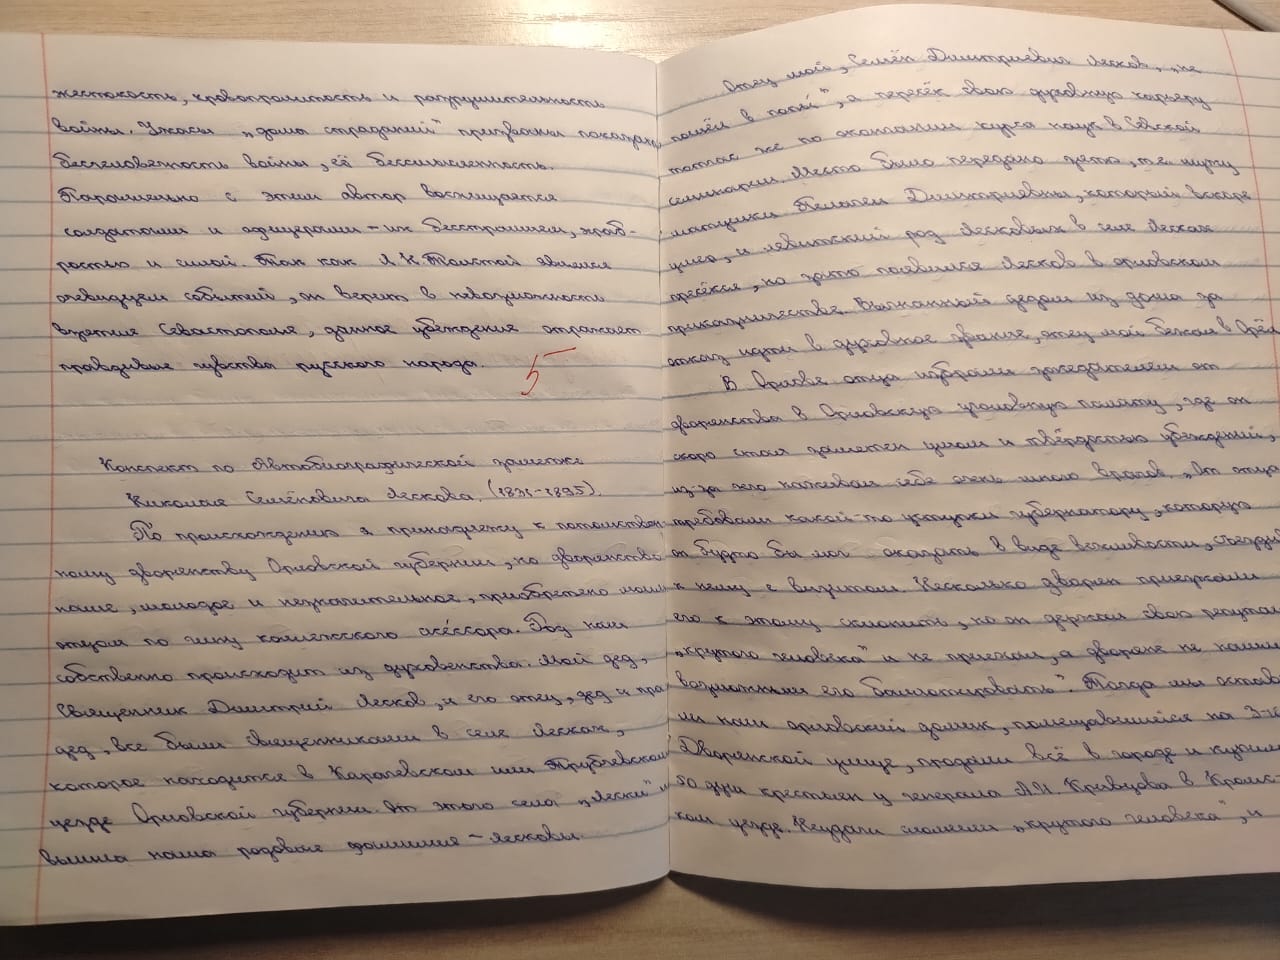 жестокость, кровопролитность и разрушительность
войны. Ужасы „дома страданий" призваны показать
бесчеловечность войны, её бессмысленность.
Параллельно с этим автор восхищается
солдатами и офицерами – их бесстрашием, храб-
ростью и силой. Так как Л.Н.Толстой является
очевидцем событий, он верит в невозможность
взятия Севастополя, данное убеждение отражает
правдивые чувства русского народа.
5-
Конспект по Автобиографической заметке
Николая Семёновича Лескова. (1831-1895).
По происхождению я принадлежу к потомствен-
ному дворянству Орловской губернии, но дворянство
наше, молодое и незначительное, приобретено моим
отцом по чину коллежского асе́ссора. Род наш
собственно происходит из духовенства. Мой дед,
священник Димитрий Лесков, и его отец, дед и пра-
дед, все были священниками в селе Лесках,
которое находится в Карачевском или Трубчевском
уезде Орловской губернии. От этого села „Лески" и
вышла наша родовые фамилия – Лесковы.
Отец мой, Семён Дмитриевич Лесков, „не
пошёл в попы", а пересёк свою духовную карьеру
тотчас же по окончании курса наук в Севской
семинарии. Место было передано зятю, т.е. мужу
матушки Пелагеи Дмитриевны, который вскоре
умер, и левитский род Лесковых в селе Лесках
пресёкся, но зато появился Лесков в орловском
приказничестве. Выгнанный дедом из дома за
отказ идти в духовное звание, отец мой бежал в Орёл
В Орлове отца избрали заседателем от
дворянства в Орловскую уголовную палату, где он
скоро стал заметен умом и твёрдостью убеждений,
из-за чего наживал себе очень много врагов. „От отца
требовали какой-то уступки губернатору, которую
он будто бы мог оказать в виде вежливости, съездив
к нему с визитом. Несколько дворян приезжали
его к этому склонить, но он держал свою репутац
„крутого человека" и не приехал, а дворяне не нашли
возможными его баллотировать". Тогда мы остави-
ли наш орловский домик, помещавшийся на 3-й
Дворянской улице, продали всё в городе и купили
50 душ крестьян у генерала А.И. Кривцова в Кромс-
ком уезде. Неудачи сломили „крутого человека", и